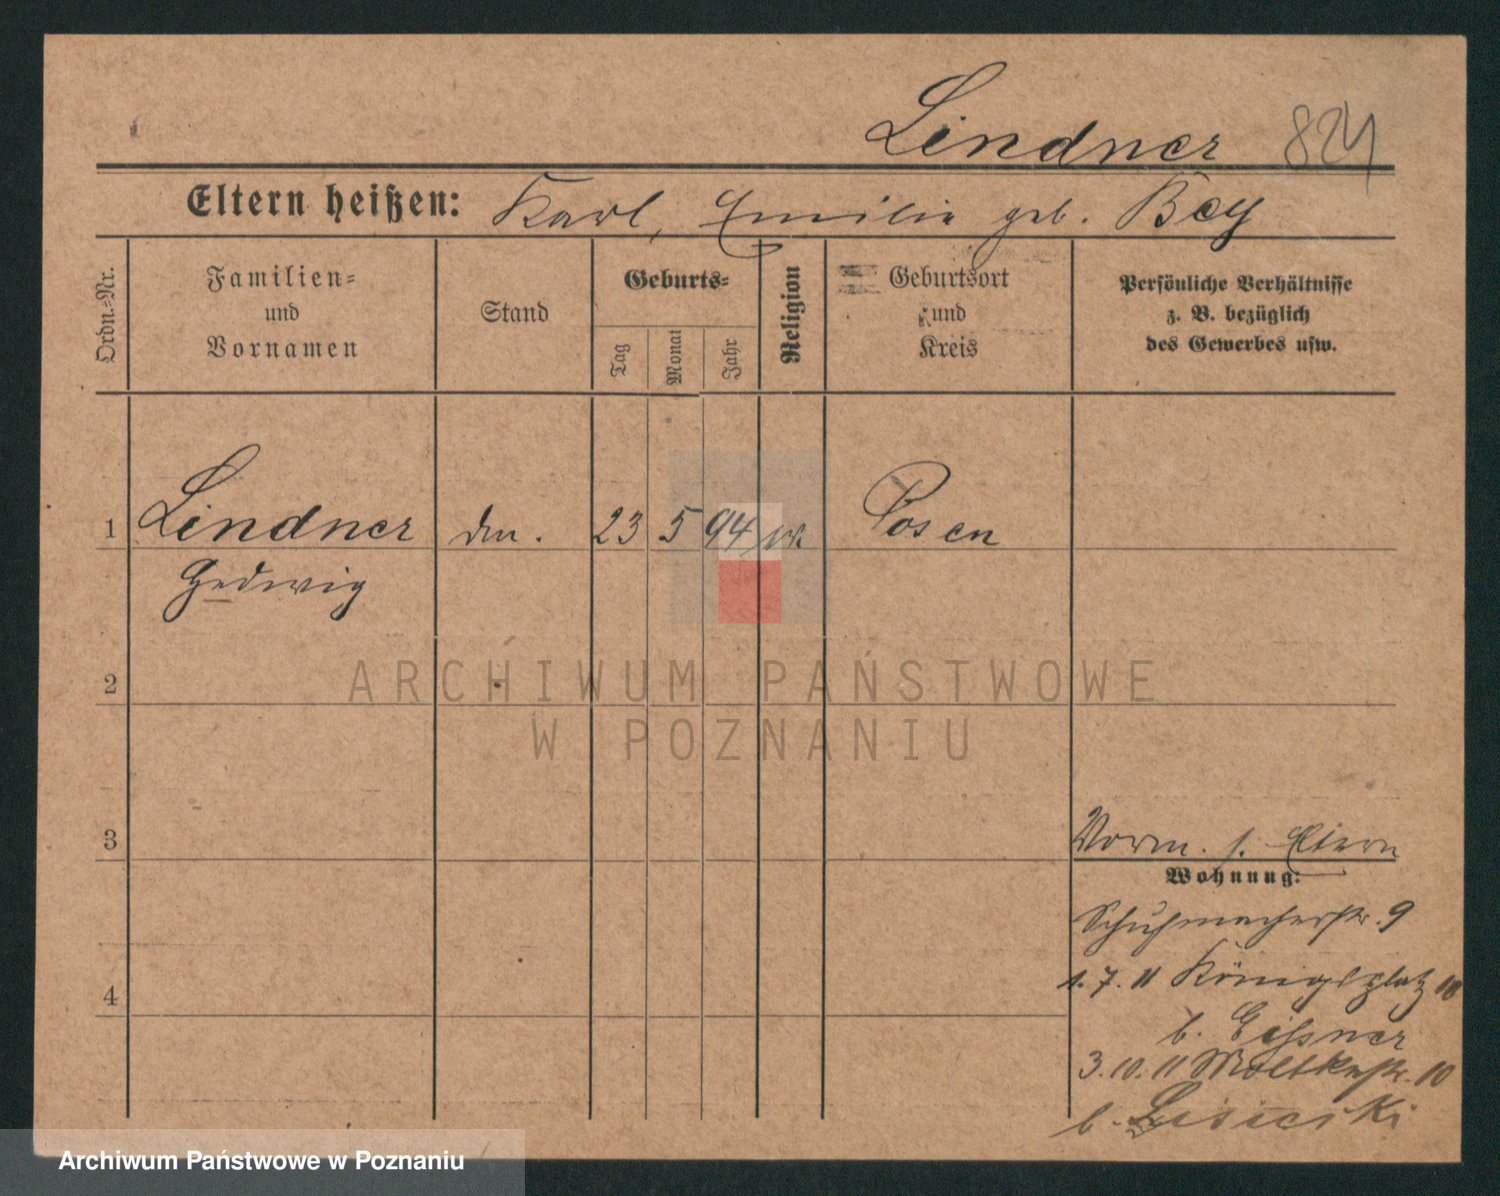 Lindner 824
Eltern heißen: Karl, Emilie geb. Bey
Ordn.-Nr.
Familien-
und
Vornamen
Stand
Geburts-
Tag
Monat
Jahr
Religion
Geburtsort
und
Kreis
Persönliche Verhältnisse
z. B. bezüglich
des Gewerbes usw.
1 Lindner 23 5 94 Posen
Hedwig
2
ARCHIWUM PAŃSTWOWE
W POZNANIU
3 Vorm. s. Eltern
Wohnung:
Schuhmacherstr. 9
4 1.7.11 Königsplatz 10
b. Eissner
3.10.11 Moltkestr. 10
b. Lisiecki
Archiwum Państwowe w Poznaniu